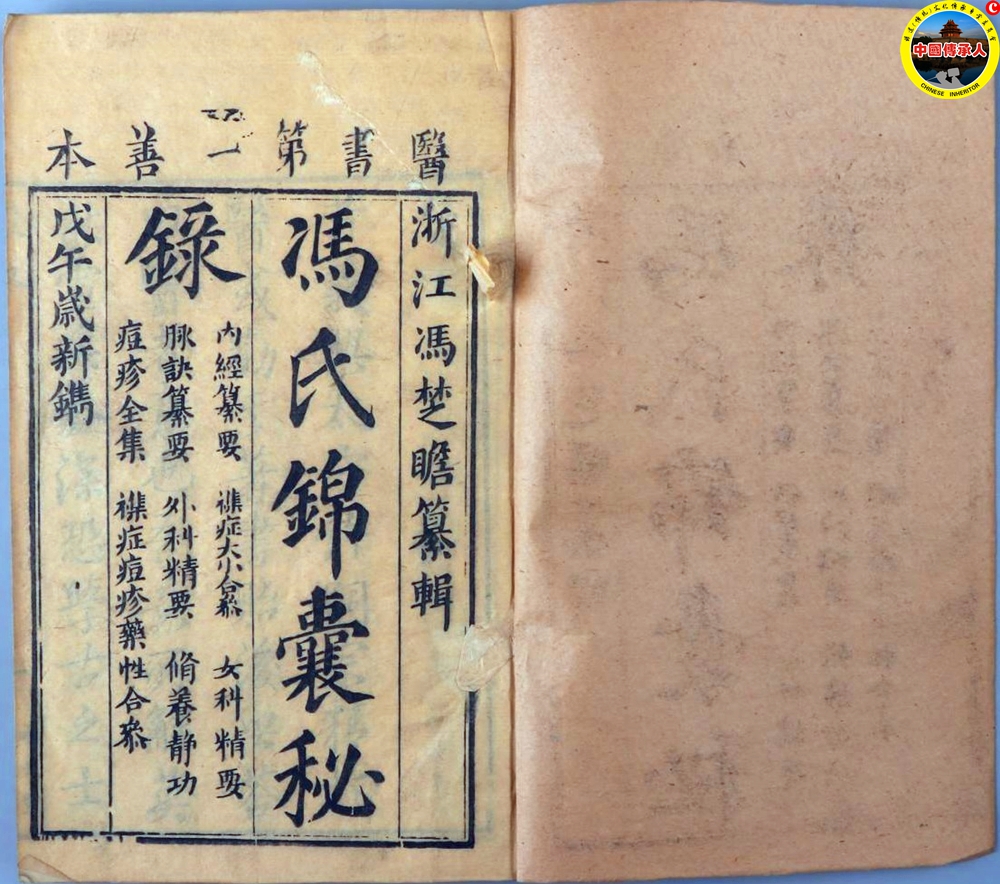 醫書第一善本
浙江馮楚瞻纂輯
馮氏錦囊秘
錄
內經纂要 襍症大小合叅 女科精要
脉訣纂要 外科精要 脩養静功
痘疹全集 襍症痘疹藥性合叅
戊午歲新鐫
中國傳承人
CHINESE INHERITOR
C